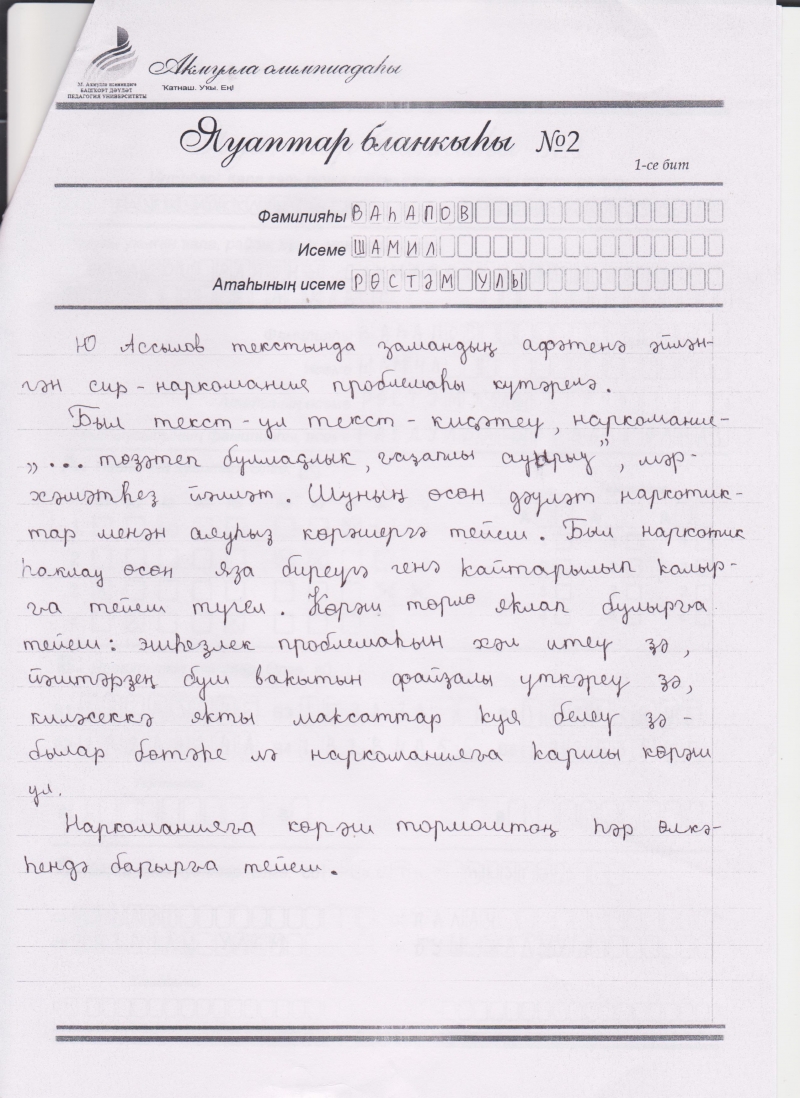 М. Акмулла исемендәге
БАШҠОРТ ДӘҮЛӘТ
ПЕДАГОГИЯ УНИВЕРСИТЕТЫ
Акмулла олимпиадаһы
Ҡатнаш. Уҡы. Ең!
Яуаптар бланкыһы №2
1-се бит
Фамилияһы ВАҺАПОВ
Исеме ШАМИЛ
Атаһының исеме РӨСТӘМ УЛЫ
Ю Ассылов текстында замандың афәтенә әйлән-
гән сир - наркомания проблемаһы күтәрелә.
Был текст - ул текст - киҫәтеү, наркомание -
„... төҙәтеп булмаҫлык, ғазаплы ауырыу”, мәр-
хәмәтһеҙ йәлләт. Шуның өсөн дәүләт наркотик-
тар менән аяуһыҙ көрәшергә тейеш. Был наркотик
һаклау өсөн яза биреүгә генә кайтарылып калыр-
ға тейеш түгел. Көрәш төрлө яклап булырға
тейеш: эшһеҙлек проблемаһын хәл итеү ҙә,
йәштәрҙең буш вакытын файҙалы үткәреү ҙә,
киләсеккә якты максаттар куя белеү ҙә -
былар бөтәһе лә наркоманияға каршы көрәш
ул.
Наркоманияға көрәш тормоштоң һәр өлкә-
һендә барырға тейеш.